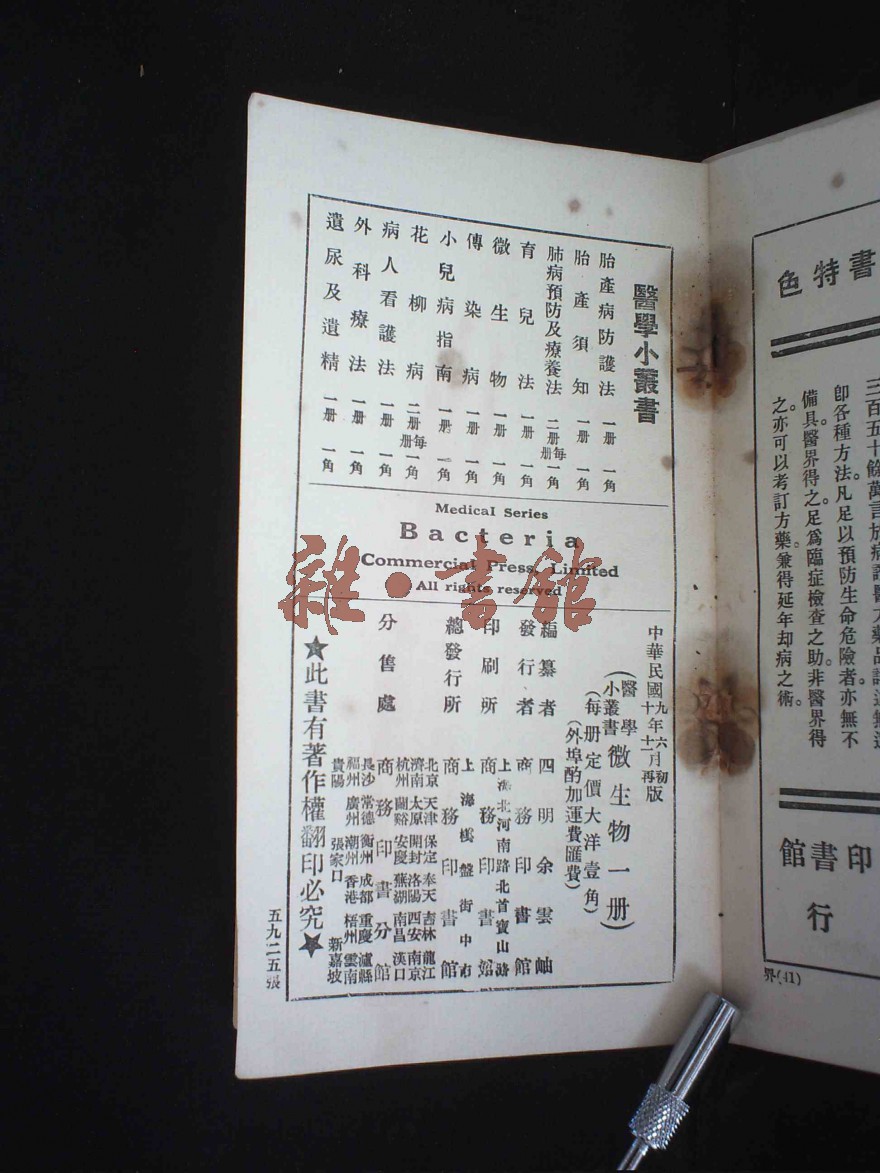 醫學小叢書
胎產病防護法 一册 一角
胎產須知 一册 一角
肺病預防及療養法 二册 每册 一角
育兒法 一册 一角
微生物 一册 一角
傳染病 一册 一角
小兒病指南 一册 一角
花柳病 二册 每册 一角
病人看護法 一册 一角
外科療法 一册 一角
遺尿及遺精 一册 一角
Medical Series
Bacteria
Commercial Press, Limited
All rights reserved
中華民國九年六月初版
十年十一月再版
(醫學小叢書微生物一册)
(每册定價大洋壹角)
(外埠酌加運費匯費)
編纂者 四明余雲岫
發行者 商務印書館
印刷所 上海北河南路北首寶山路
商務印書館
總發行所 上海棋盤街中市
商務印書館
分售處 北京 天津 保定 奉天 吉林 龍江
濟南 太原 開封 洛陽 西安 南京
杭州 蘭谿 安慶 蕪湖 南昌 漢口
商務印書分館
長沙 常德 衡州 成都 重慶 瀘縣
福州 廣州 潮州 香港 梧州 雲南
貴陽 張家口 新嘉坡
★此書有著作權翻印必究★
五九二五張
雜·書館
書特色
三百五十條萬言於病
卽各種方法凡足以預防生命危險者亦無不
備具。醫界得之。足爲臨症檢查之助。非醫界得
之。亦可以考訂方藥。兼得延年却病之術。
印書館
行
界(41)